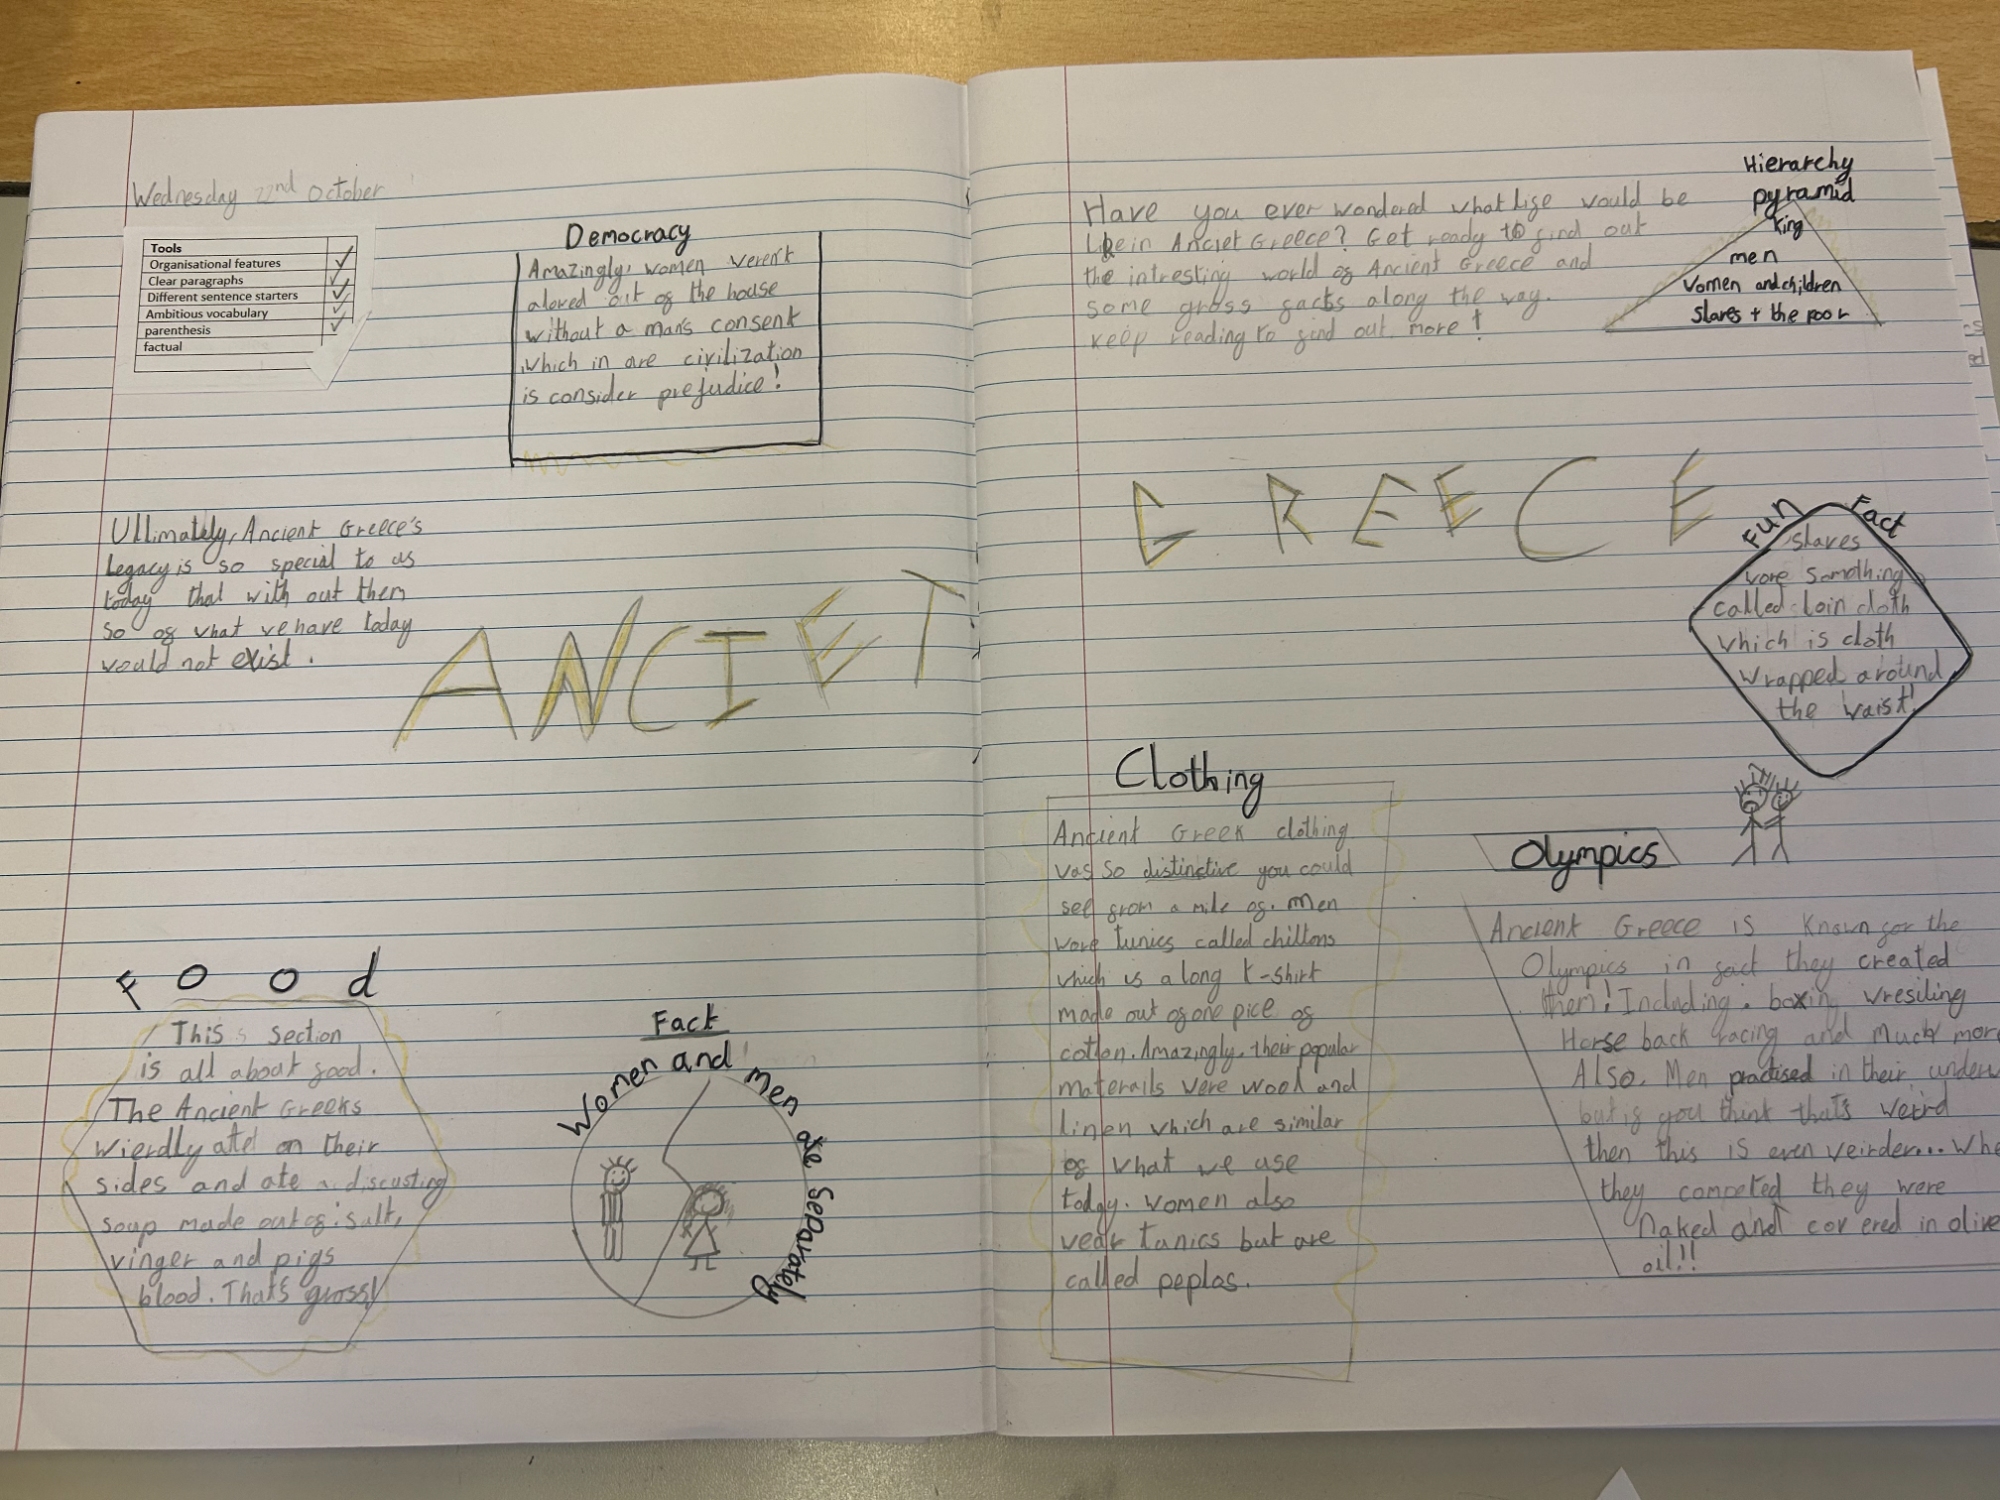 Wednesday 22nd October
Tools
Organisational features ✓
Clear paragraphs ✓
Different sentence starters ✓
Ambitious vocabulary ✓
parenthesis ✓
factual
Democracy
Amazingly, women weren't
alowed out of the house
without a man's consent
which in are civilization
is consider prejudice!
Ultimately, Ancient Greece's
Legacy is so special to us
today that with out them
so of what we have today
would not exist.
ANCIET
Food
This section
is all about food.
The Ancient Greeks
wierdly ate on their
sides and ate a discusting
soup made out of: salt,
vinger and pigs
blood. That's gross!
Fact
Women and men ate separately
Have you ever wondered what life would be
like in Anciet Greece? Get ready to find out
the intresting world of Ancient Greece and
some gross facts along the way.
keep reading to find out more!
Hierarchy
pyramid
King
men
women and children
slaves + the poor
GREECE
Fun Fact
slaves
wore something
called loin cloth
which is cloth
wrapped around
the waist!
Clothing
Ancient Greek clothing
was so distinctive you could
see from a mile of. Men
wore tunics called chiltons
which is a long t-shirt
made out of one pice of
cotton. Amazingly, their popular
materails were wool and
linen which are similar
of what we use
today. women also
wear tunics but are
called peplos.
Olympics
Ancient Greece is known for the
Olympics in fact they created
them! Including: boxing wresiling
Horse back racing and much more
Also, Men practised in their
but if you think that's weird
then this is even weirder...
they competed they were
Naked and covered in olive
oil!!